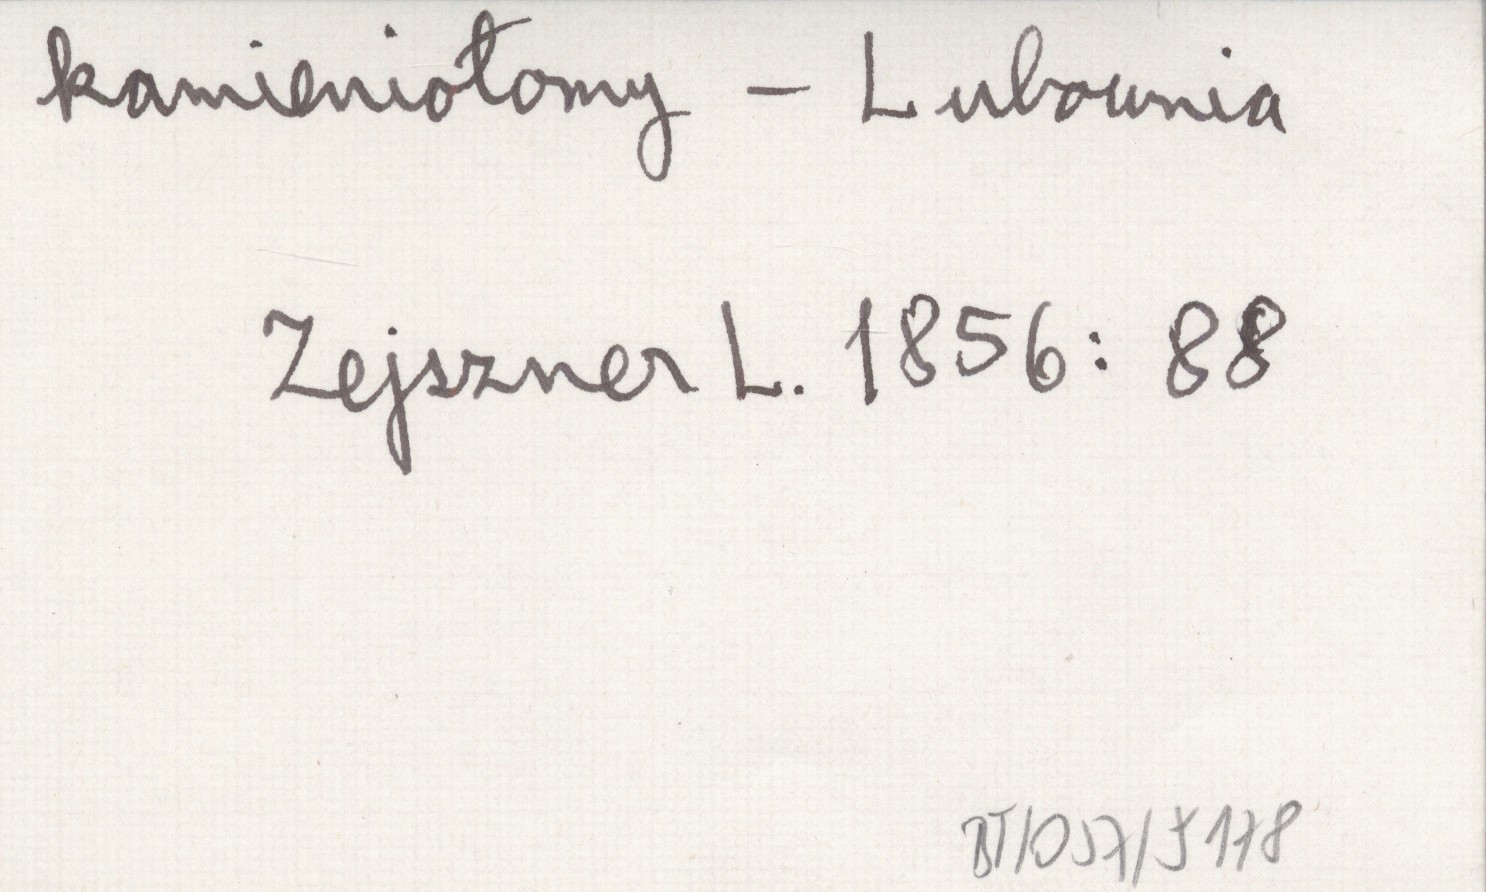 kamieniołomy – Lubownia
Zejszner L. 1856: 88
BT/057/5178